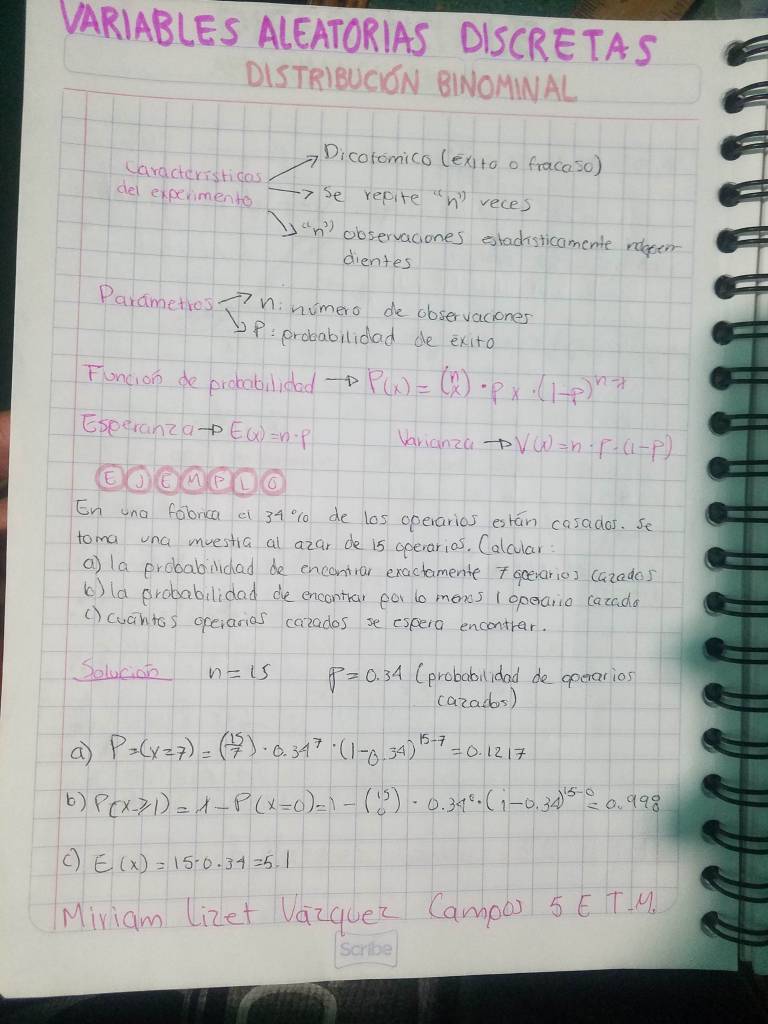 VARIABLES ALEATORIAS DISCRETAS
DISTRIBUCIÓN BINOMINAL
Características
del experimento
Dicotómico (éxito o fracaso)
Se repite "n" veces
"n" observaciones estadísticamente indepen-
dientes
Parámetros → n: número de observaciones
p: probabilidad de éxito
Función de probabilidad → P(x) = (n x) · p x · (1-p)ⁿ⁻ˣ
Esperanza → E(x) = n·p Varianza → V(x) = n·p·(1-p)
EJEMPLO
En una fábrica el 34% de los operarios están casados. Se
toma una muestra al azar de 15 operarios. Calcular:
a) la probabilidad de encontrar exactamente 7 operarios cazados
b) la probabilidad de encontrar por lo menos 1 operario cazado
c) cuántos operarios cazados se espera encontrar.
Solución n = 15 p = 0.34 (probabilidad de operarios
cazados)
a) P=(x=7) = (15/7) · 0.34⁷ · (1-0.34)¹⁵⁻⁷ = 0.1217
b) P(x≥1) = 1 - P(x=0) = 1 - (15 0) · 0.34⁰ · (1-0.34)¹⁵⁻⁰ = 0.998
c) E(x) = 15·0.34 = 5.1
Miriam Lizet Vázquez Campos 5 E T.M.
Scribe